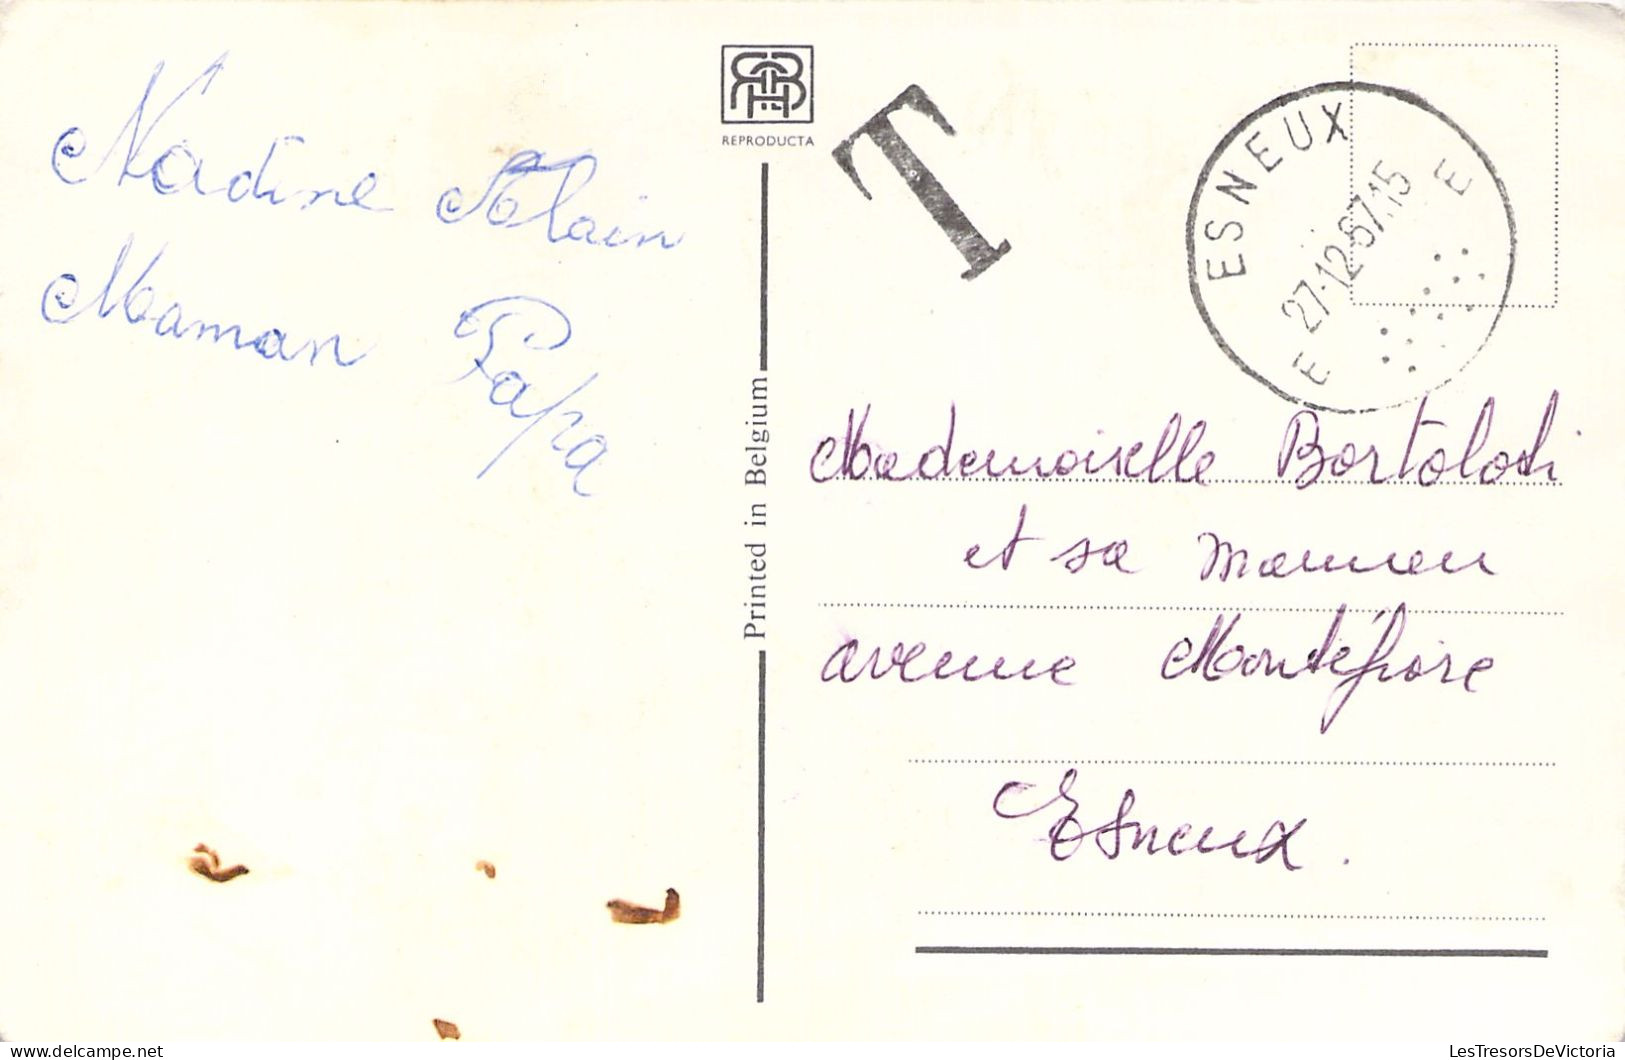 Nadine Alain
Maman Papa
REPRODUCTA
Printed in Belgium
T
ESNEUX
27-12-67.15
E E
Mademoiselle Bortolotti
et sa maman
avenue Montéfiore
Esneux.
LesTresorsDeVictoria